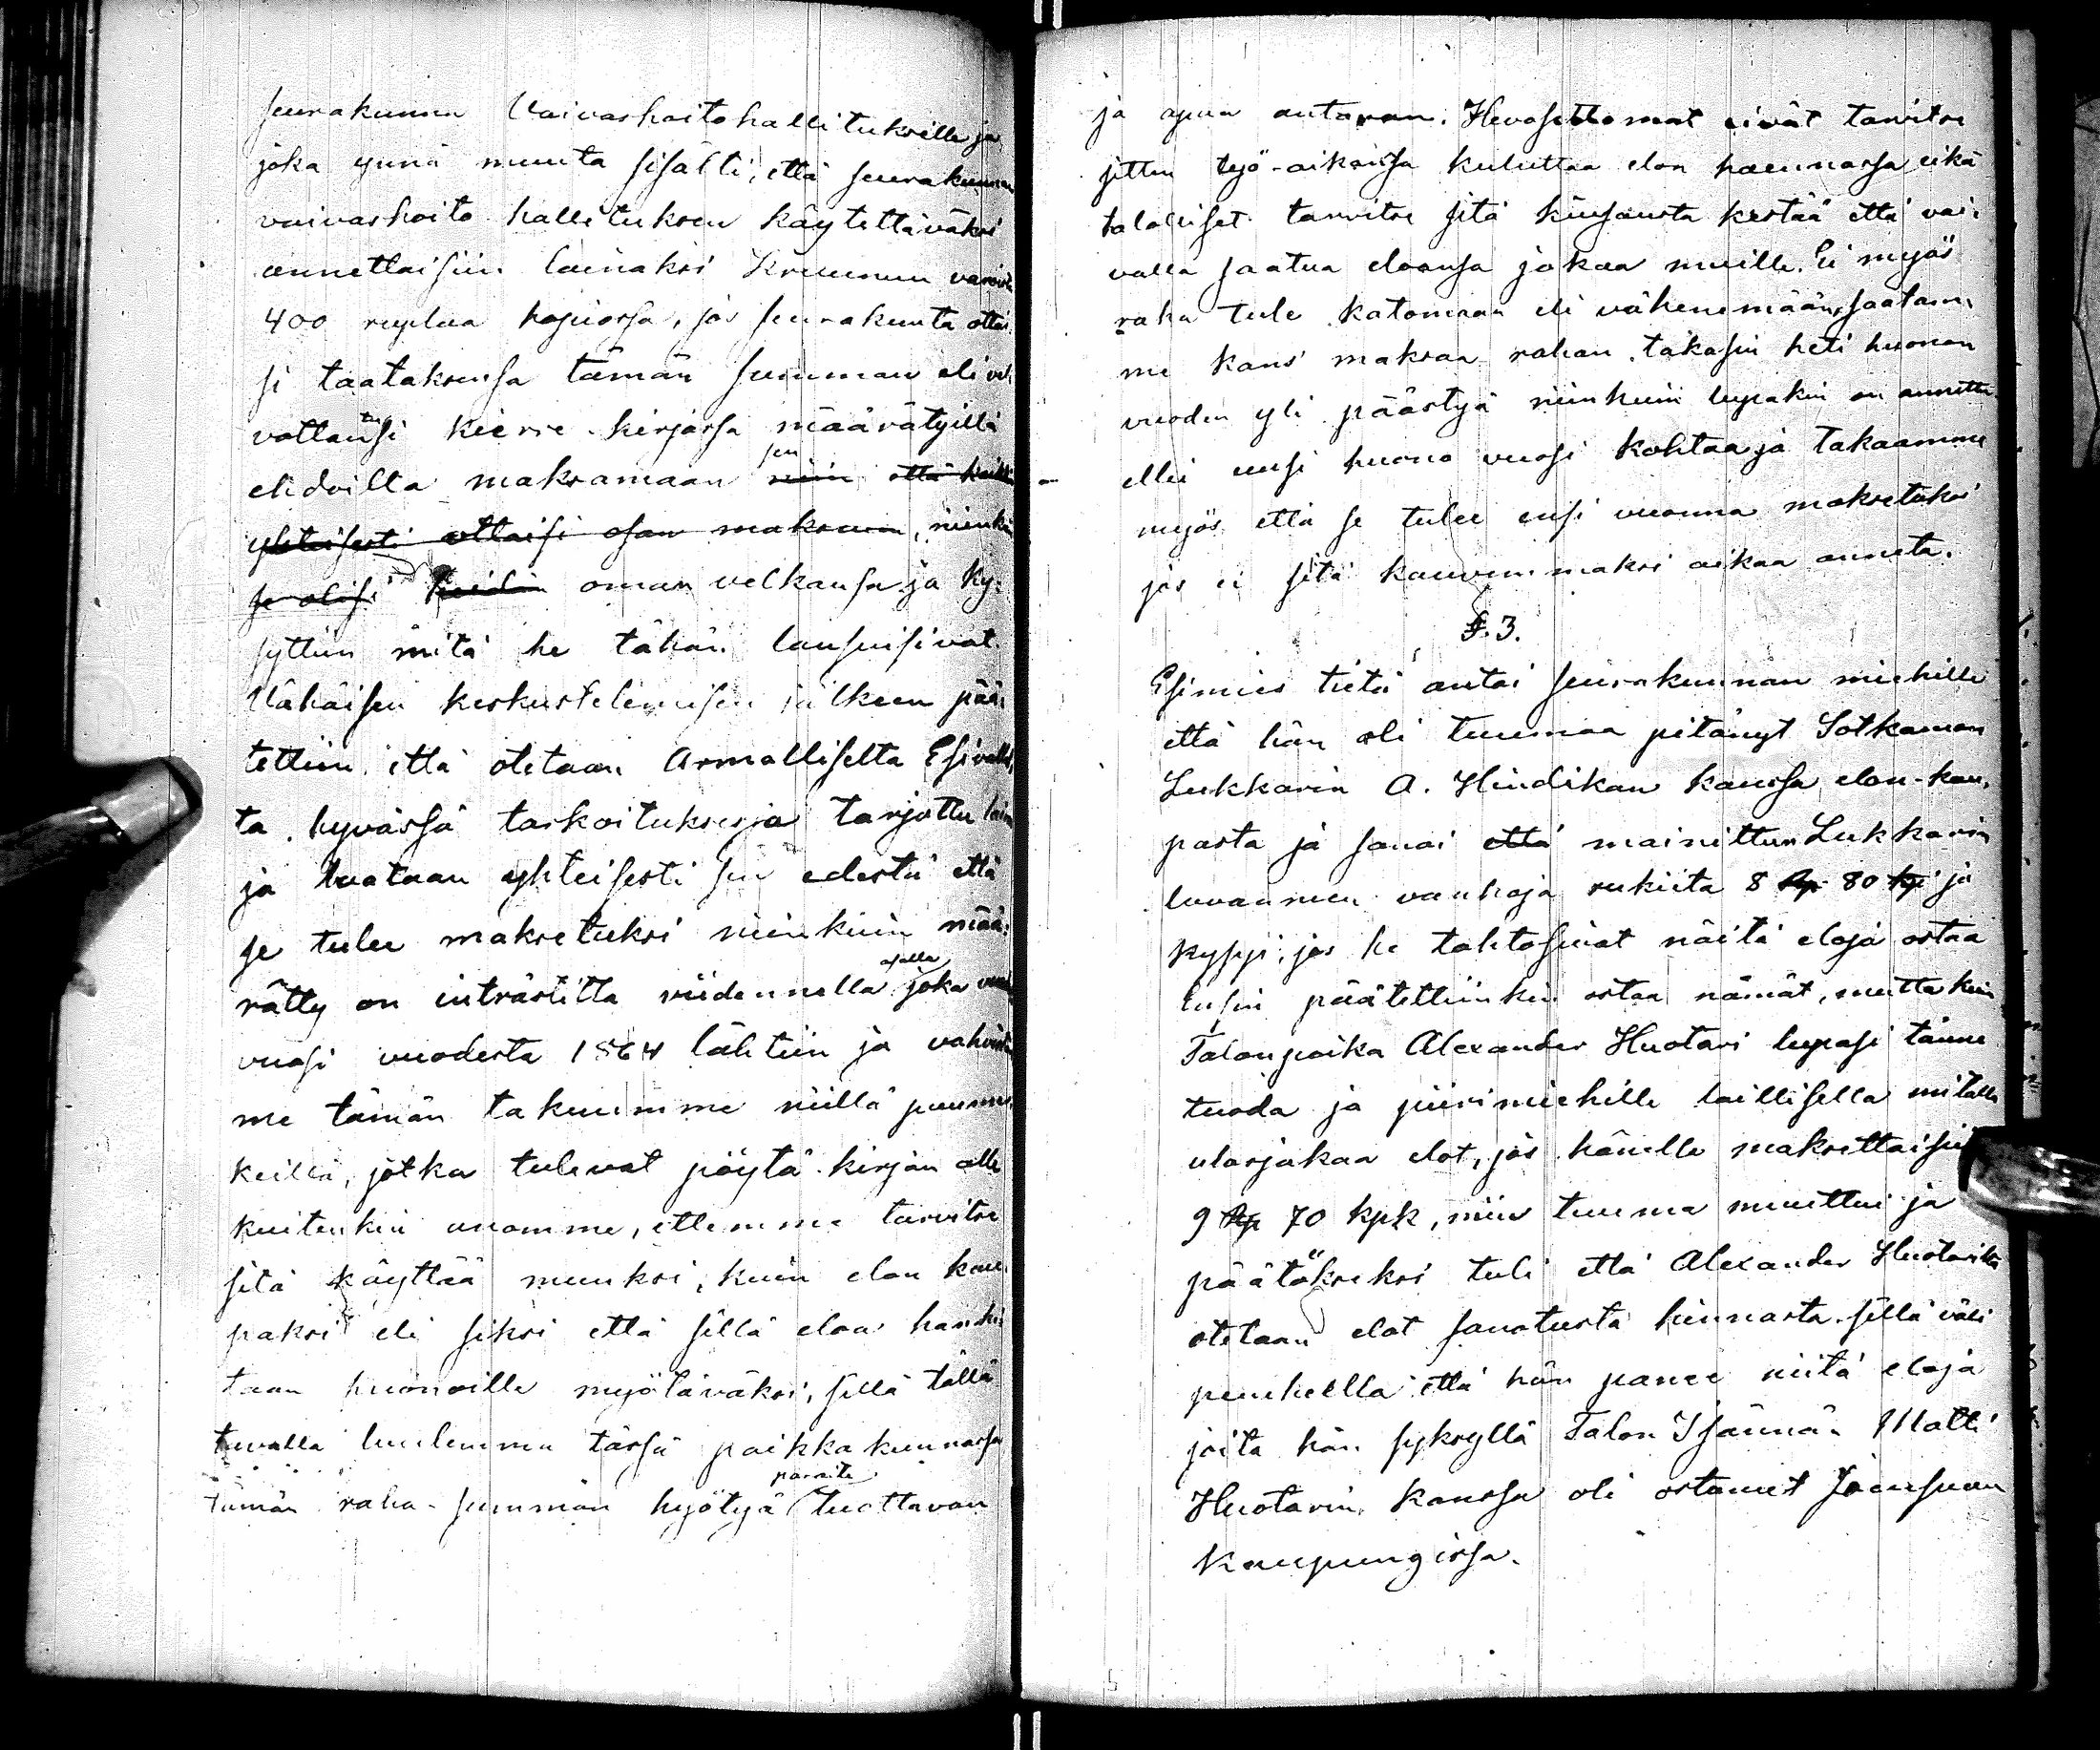 seurakunnan Vaivashoitohallitukselle ja
joka ynnä muuta sisälti, että seurakunnan
vaivashoito hallituksen käytettäväksi
annettaisiin lainaksi Kruunun varoista
400 ruplaa hopiossa, jos seurakunta ottai
si taataksensa tämän summan eli vel
vottausi kierre-kirjassa määrätyillä
ehdoilla maksamaan sen niin että kaikki
yhteisesti ottaisi osan maksuun, niinkuin
se olisi heidän oman velkansa ja ky-
syttiin mitä he tähän lausuisivat.
Vähäisen keskustelemisen jälkeen pää-
tettiin että otetaan Armolliselta Esivallal-
ta hyvässä tarkoituksessa tarjottu laina
ja taataan yhteisesti sen edestä että
se tulee maksetuksi niinkuin mää-
rätty on inträstittä viidennellä osalla joka
vuosi vuodesta 1864 lähtiin ja vahvistam
me tämän takuumme niillä puumer
keillä, jotka tulevat pöytä-kirjan alle
kuitenkin anomme, ettemme tarvitse
sitä käyttää muuksi, kuin elon kau-
paksi eli siksi että sillä eloa hanki-
taan huonoille myötäväksi, sillä tällä
tavalla luulemma tässä paikkakunnassa
tämän raha-summan hyötyä paraite tuottavan
ja apua antavan. Hevosettomat eivät tarvitse
sitten työ-aikaisa kuluttaa elon haennassa eikä
talolliset tarvitse sitä kiusausta kestää että vai-
valla saatua eloansa jakaa muille. Ei myös
raha tule katomaan eli vähenemään, saatam-
me kans' maksaa rahan takasin heti huonon
vuoden yli päästyä niinkuin lupakin on annettu
ellei uusi huono vuosi kohtaa ja takaamme
myös että se tulee ensi vuonna maksetuksi
jos ei sitä kauvemmaksi aikaa anneta.
§. 3.
Esimies tietä antoi seurakunnan miehille
että hän oli tuumaa pitänyt Sotkamon
Lukkarin A. Hindikan kanssa elon-kau-
pasta ja sanoi että mainittun Lukkarin
luvannen vanhoja rukiita 8 Rp 80 kp ja
kysyi, jos he tahtosivat näitä eloja ostaa
Ensin päätettiinkin ostaa nämät, mutta kuin
Talonpoika Alexander Huotari lupasi tänne
tuoda ja piirimiehille laillisella mitalla
ulosjakaa elot, jos hänelle maksettaisiin
9 Rp 70 kpk, niin tuuma muuttui ja
päätökseksi tuli että Alexander Huotarilta
otetaan elot sanotusta hinnasta sillä väli
puuheella että hän panee niitä eloja
joita hän syksyllä Talon Isännän Matti
Huotarin kanssa oli ostanut Joensuun
kaupungissa.